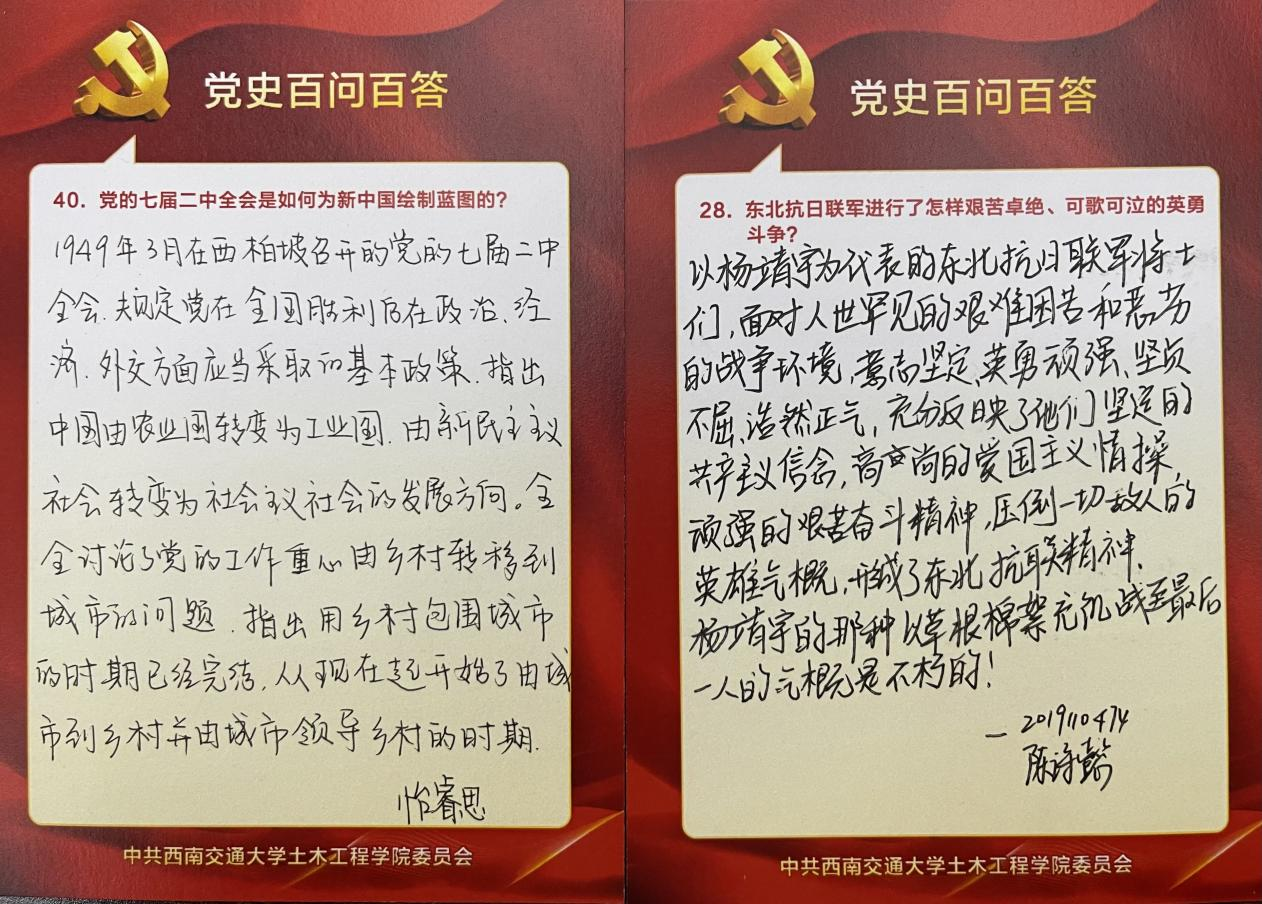 党史百问百答
40. 党的七届二中全会是如何为新中国绘制蓝图的?
1949年3月在西柏坡召开的党的七届二中
全会.规定党在全国胜利后在政治、经
济.外交方面应当采取的基本政策.指出
中国由农业国转变为工业国.由新民主主义
社会转变为社会主义社会的发展方向。全
会讨论了党的工作重心由乡村转移到
城市的问题.指出用乡村包围城市
的时期已经完结.从现在起开始了由城
市到乡村并由城市领导乡村的时期.
睿思
中共西南交通大学土木工程学院委员会
党史百问百答
28. 东北抗日联军进行了怎样艰苦卓绝、可歌可泣的英勇
斗争?
以杨靖宇为代表的东北抗日联军将士
们,面对人世罕见的艰难困苦和恶劣
的战争环境,意志坚定、英勇顽强、坚贞
不屈、浩然正气,充分反映了他们坚定的
共产主义信念,高尚的爱国主义情操,
顽强的艰苦奋斗精神,压倒一切敌人的
英雄气概,形成了东北抗联精神.
杨靖宇的那种以草根棉絮充饥战至最后
一人的气概是不朽的!
— 2019110474
陈诗懿
中共西南交通大学土木工程学院委员会